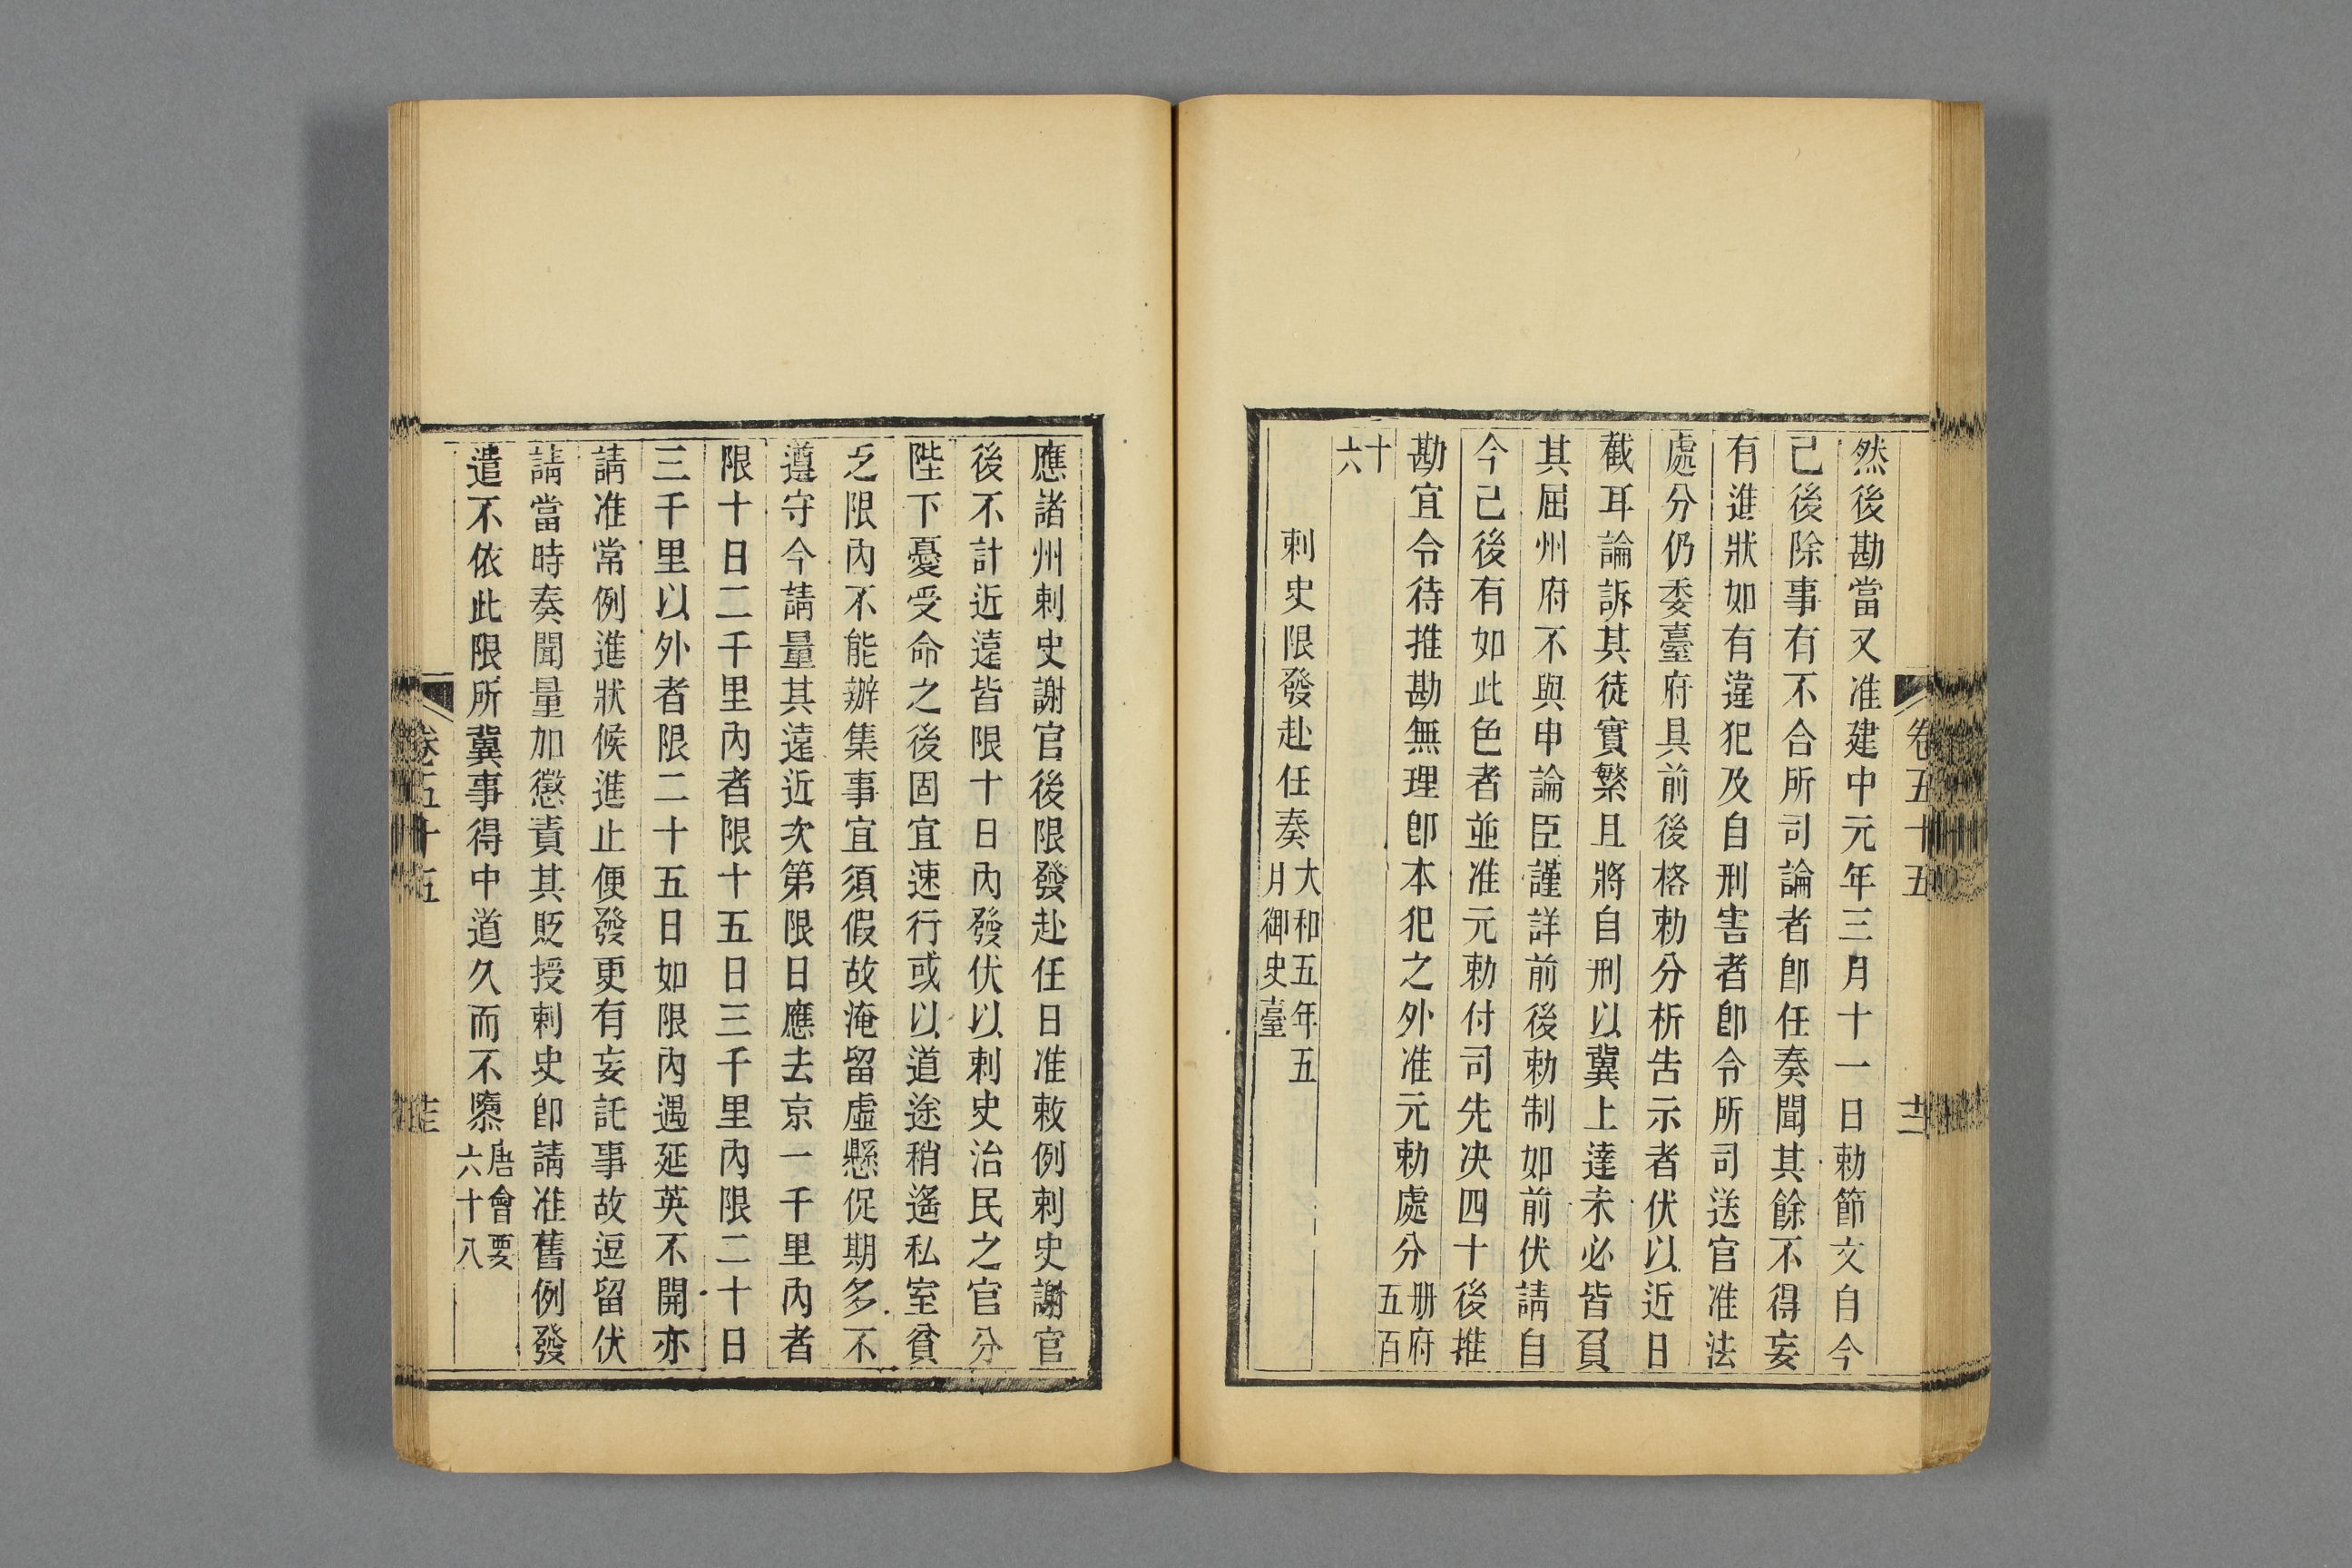 然後勘當又准建中元年三月十一日勅節文自今
己後除事有不合所司論者卽任奏聞其餘不得妄
有進狀如有違犯及自刑害者卽令所司送官准法
處分仍委臺府具前後格勅分析告示者伏以近日
截耳論訴其徒實繁且將自刑以冀上達未必皆負
其屈州府不與申論臣謹詳前後勅制如前伏請自
今己後有如此色者並准元勅付司先决四十後推
勘宜令待推勘無理卽本犯之外准元勅處分册府
五百
十
六
刺史限發赴任奏大和五年五
月御史臺
應諸州刺史謝官後限發赴任日准敕例刺史謝官
後不計近遠皆限十日內發伏以刺史治民之官分
陛下憂受命之後固宜速行或以道途稍遙私室貧
乏限內不能辦集事宜須假故淹留虛懸促期多不
遵守今請量其遠近次第限日應去京一千里內者
限十日二千里內者限十五日三千里內限二十日
三千里以外者限二十五日如限內遇延英不開亦
請准常例進狀候進止便發更有妄託事故逗留伏
請當時奏聞量加懲責其貶授刺史卽請准舊例發
遣不依此限所冀事得中道久而不隳唐會要
六十八
卷五十五
十二
卷五十五